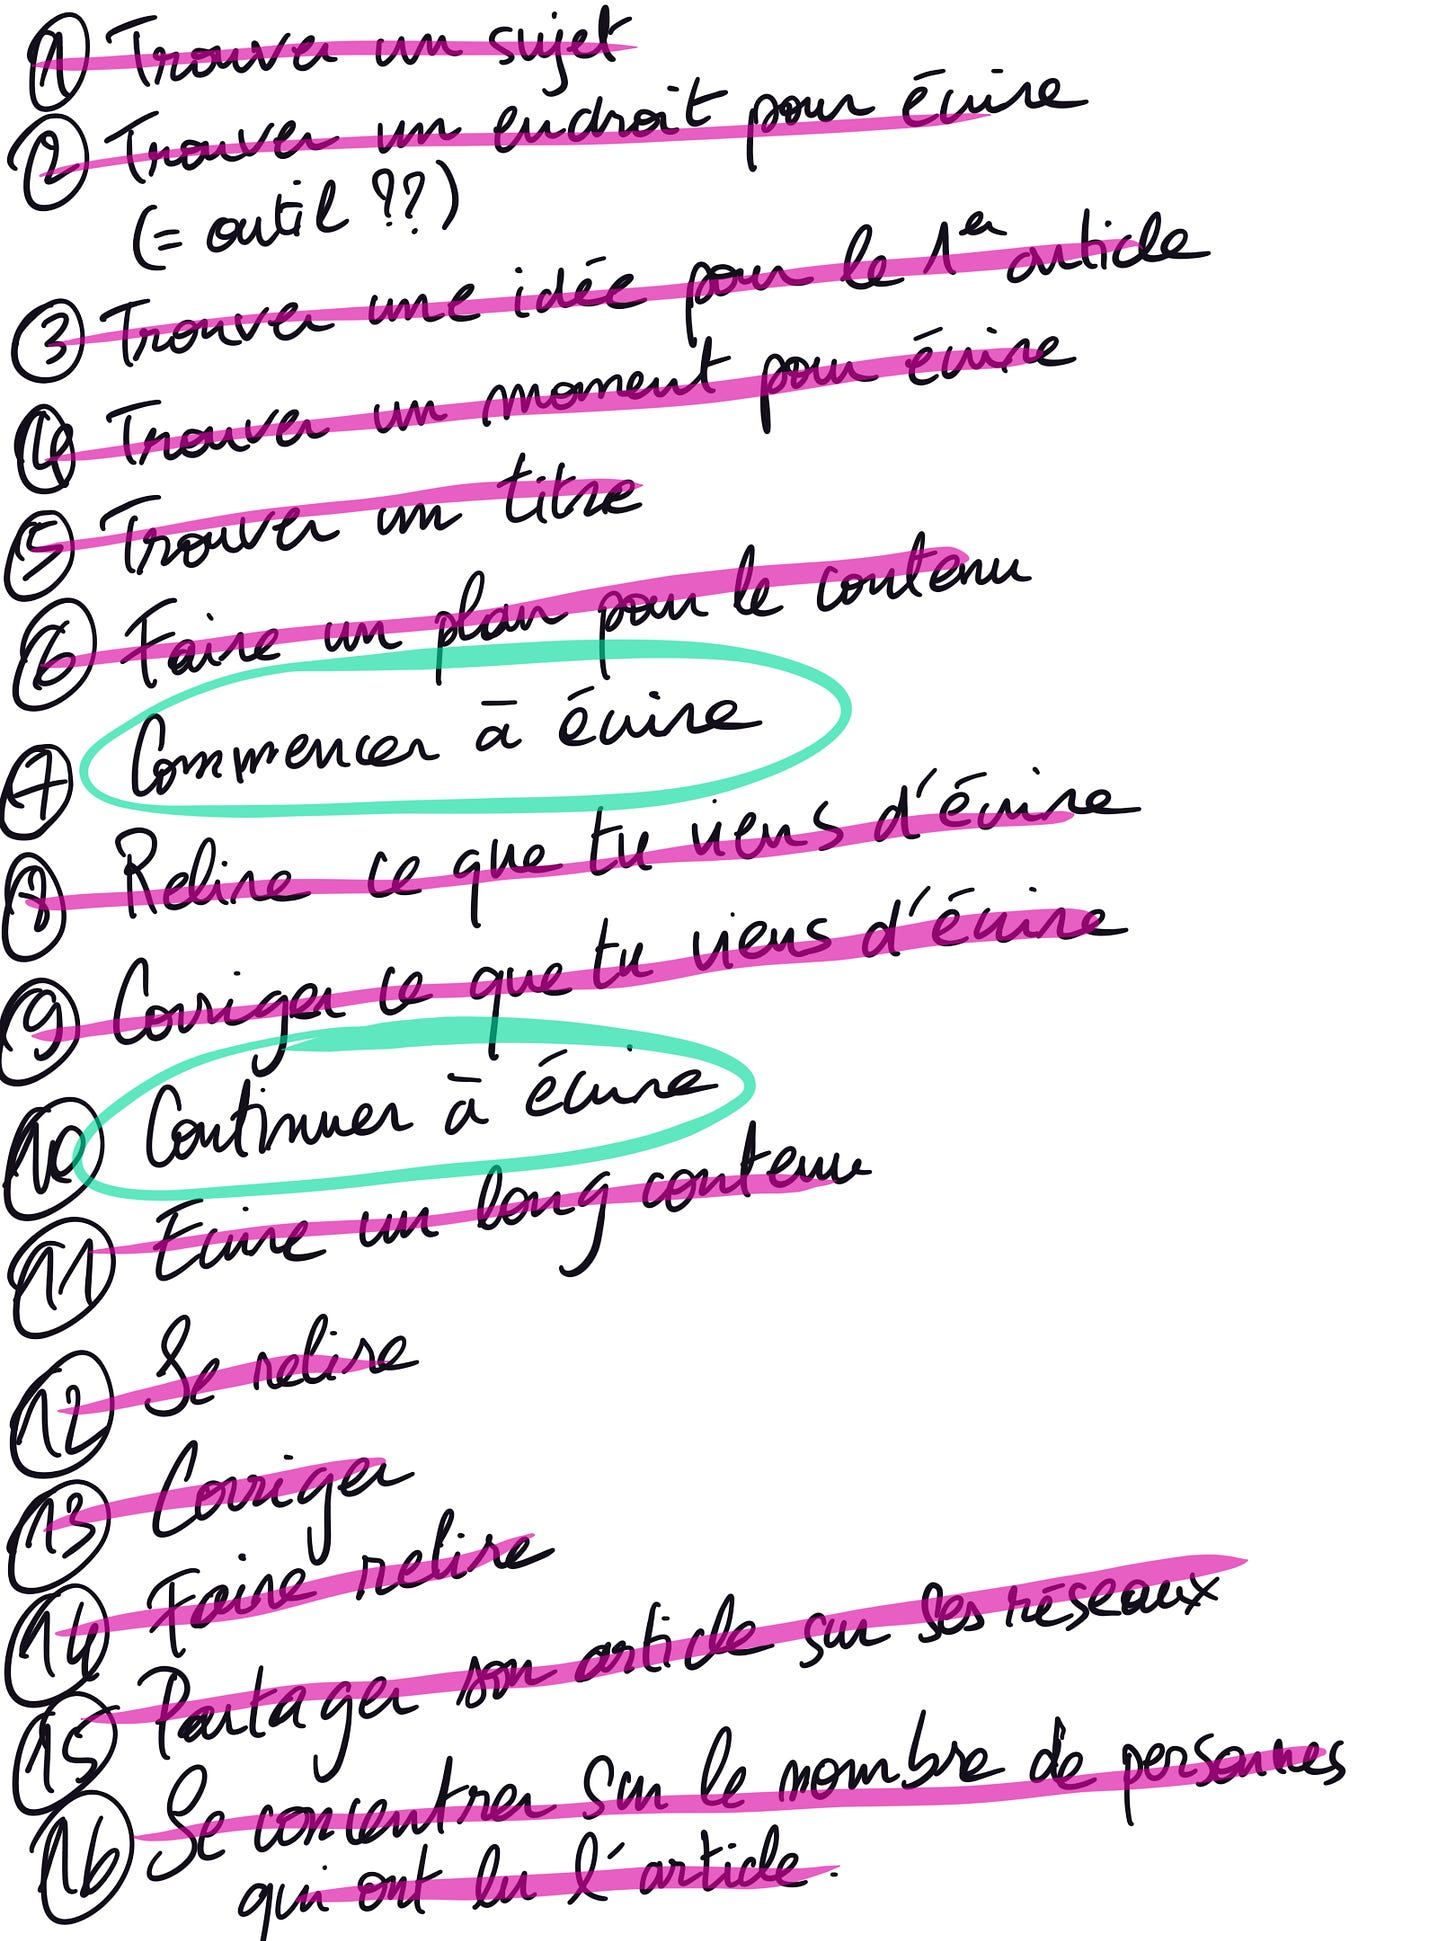 1 Trouver un sujet
2 Trouver un endroit pour écrire
(= outil ??)
3 Trouver une idée pour le 1er article
4 Trouver un moment pour écrire
5 Trouver un titre
6 Faire un plan pour le contenu
7 Commencer à écrire
8 Relire ce que tu viens d'écrire
9 Corriger ce que tu viens d'écrire
10 Continuer à écrire
11 Ecrire un long contenu
12 Se relire
13 Corriger
14 Faire relire
15 Partager son article sur ses réseaux
16 Se concentrer sur le nombre de personnes
qui ont lu l'article.